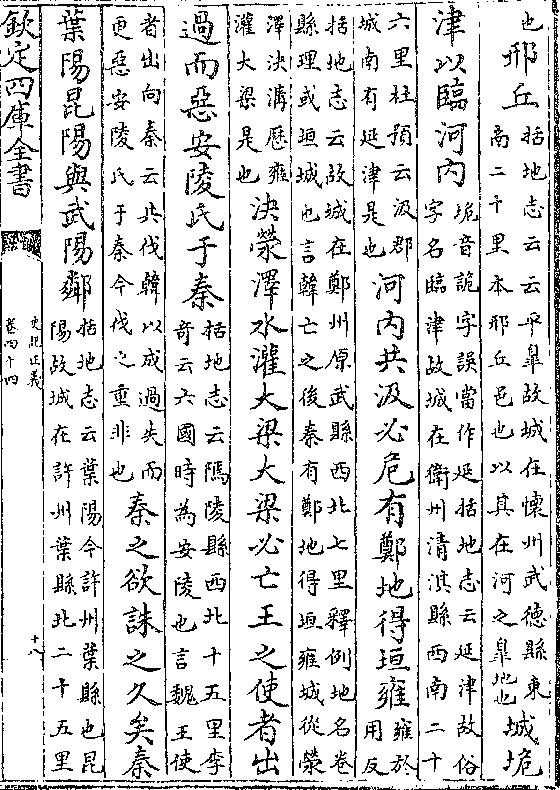 也邢丘括地志云云平臯故城在懷州武德縣東
南二十里本邢丘邑也以其在河之臯地也城垝
津以臨河內垝音詭字誤當作延括地志云延津故俗
字名臨津故城在衛州清淇縣西南二十
六里杜預云汲郡
城南有延津是也河內共汲必危有鄭地得垣雍雍於
用反
括地志云故城在鄭州原武縣西北七里釋例地名卷
縣理或垣城也言韓亡之後秦有鄭地得垣雍城從滎
澤決溝歷雍
灌大梁是也決滎澤水灌大梁大梁必亡王之使者出
過而惡安陵氏于秦括地志云隝陵縣西北十五里李
奇云六國時為安陵也言魏王使
者出向秦云共伐韓以成過失而
更惡安陵氏于秦今伐之重非也秦之欲誅之久矣秦
葉陽昆陽與武陽鄰括地志云葉陽今許州葉縣也昆
陽故城在許州葉縣北二十五里
欽定四庫全書
史記正義
卷四十四
十八